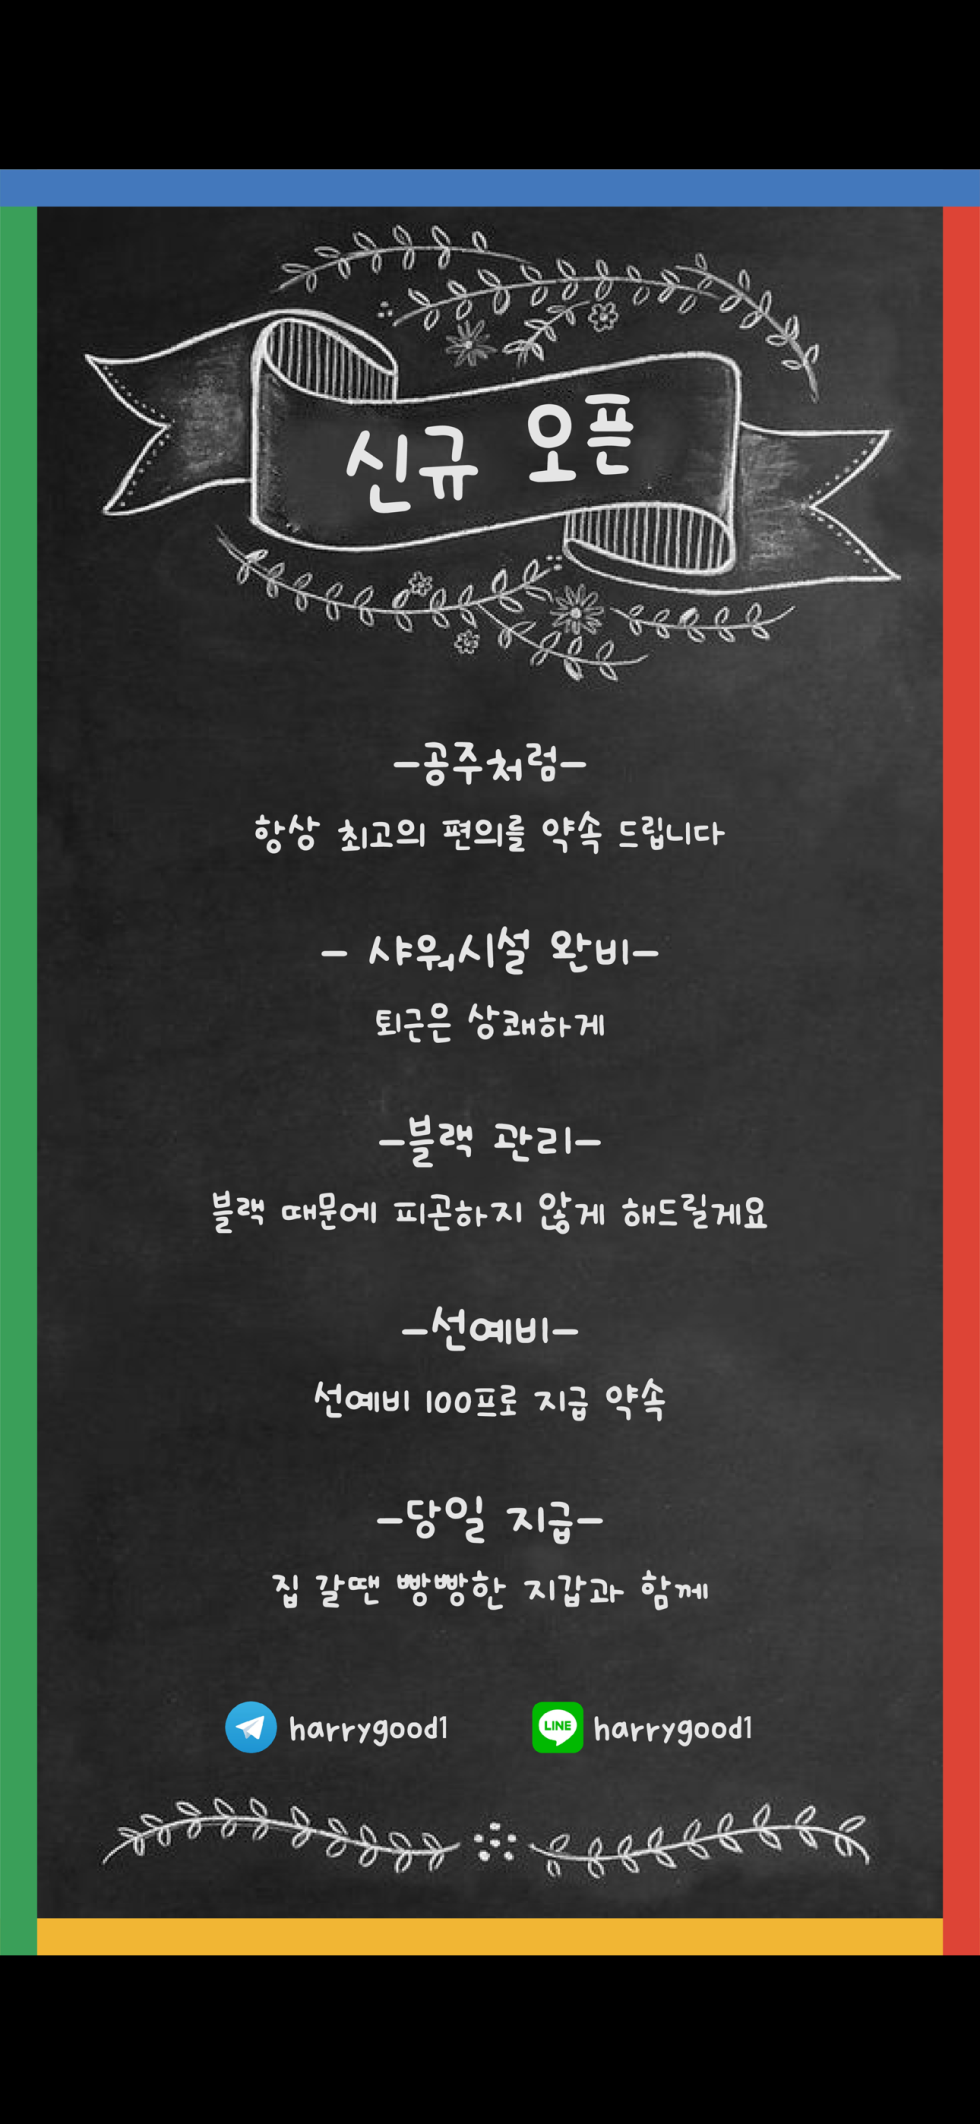 신규 오픈
-공주처럼-
항상 최고의 편의를 약속 드립니다
- 샤워시설 완비-
퇴근은 상쾌하게
-블랙 관리-
블랙 때문에 피곤하지 않게 해드릴게요
-선예비-
선예비 100프로 지급 약속
-당일 지급-
집 갈땐 빵빵한 지갑과 함께
harrygood1 LINE harrygood1